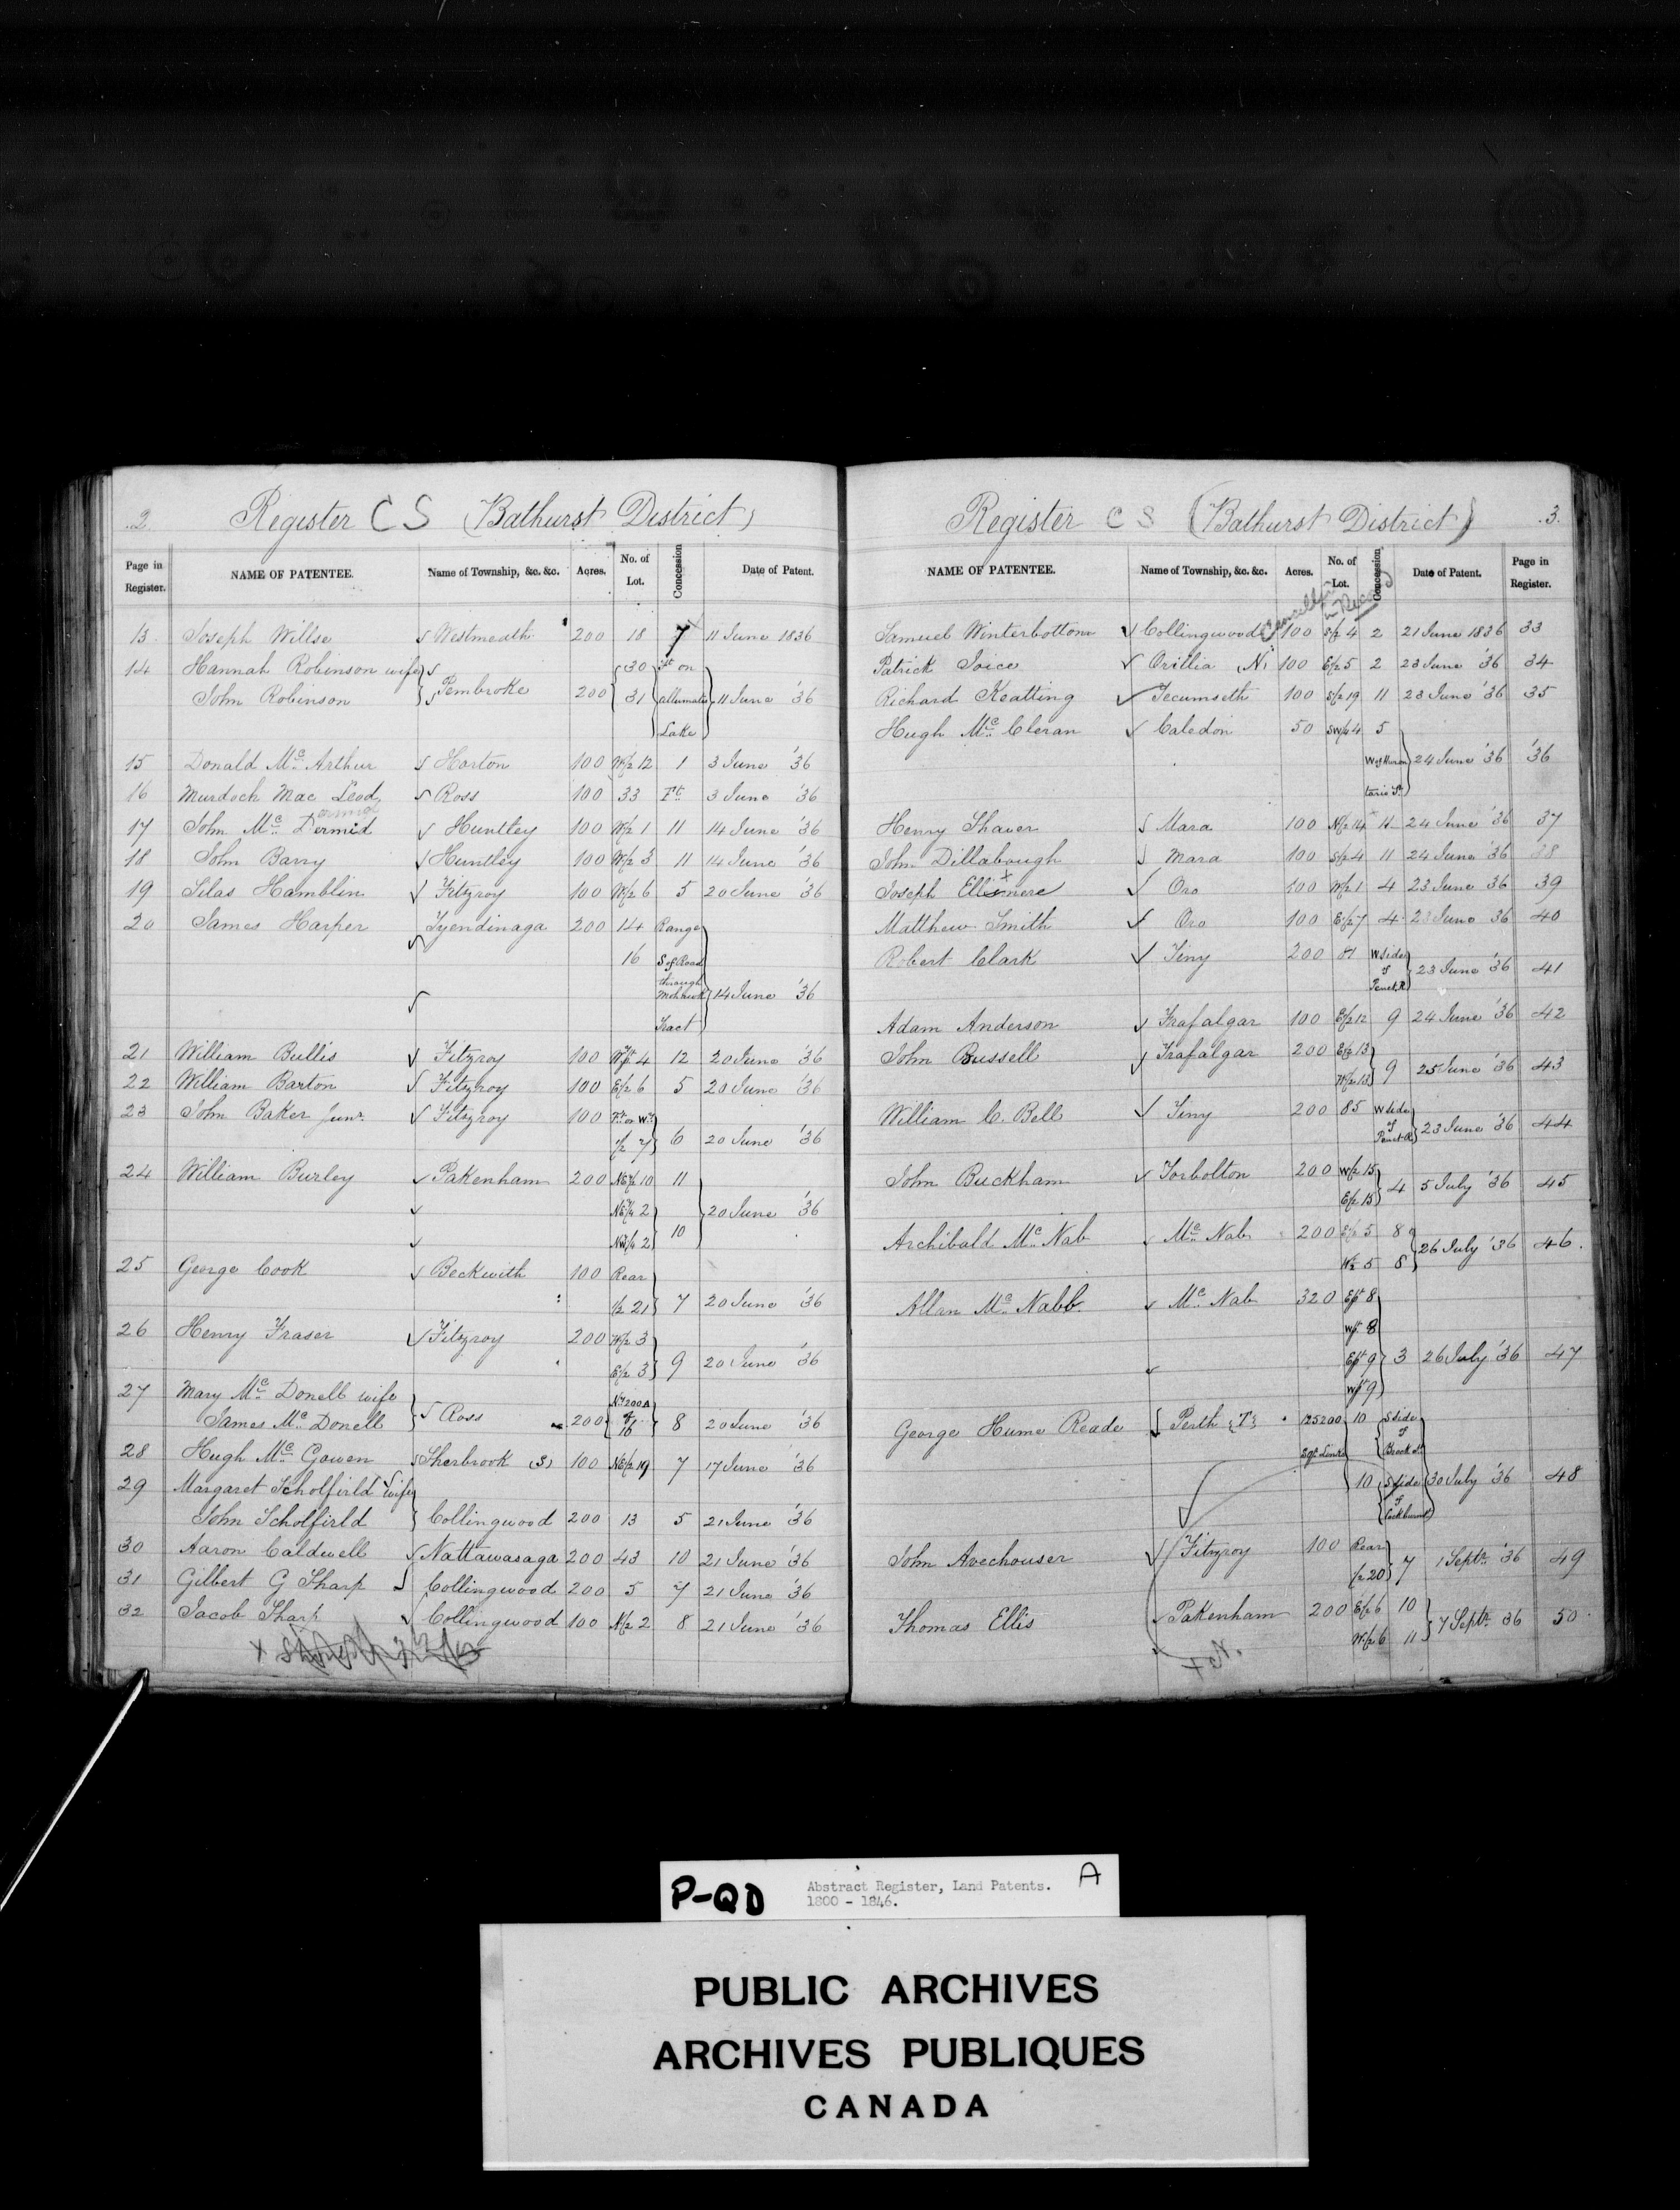 2 Register C S (Bathurst District)
Page in Register. NAME OF PATENTEE. Name of Township, &c. &c. Acres. No. of Lot. Concession Date of Patent.
13 Joseph Willse Westmeath 200 18 7 11 June 1836
14 Hannah Robinson wife 30 1st on
John Robinson Pembroke 200 31 allumate 11 June '36
Lake
15 Donald Mc Arthur Horton 100 W/2 12 1 3 June '36
16 Murdoch Mac Leod Ross 100 33 Ft 3 June '36
17 John Mc Dermid Huntley 100 W/2 1 11 14 June '36
18 John Barry Huntley 100 W/2 3 11 14 June '36
19 Silas Hamblin Fitzroy 100 W/2 6 5 20 June '36
20 James Harper Tyendinaga 200 14 Range
16 S of Road
through
Mohawk 14 June '36
Tract
21 William Bullis Fitzroy 100 4 12 20 June '36
22 William Barton Fitzroy 100 E/2 6 5 20 June '36
23 John Baker Junr. Fitzroy 100 Ft or W
/2 7 6 20 June '36
24 William Burley Pakenham 200 NE/2 10 11
NE/4 2 20 June '36
NW/4 2 10
25 George Cook Beckwith 100 Rear
1/2 21 7 20 June '36
26 Henry Fraser Fitzroy 200 W/2 3
E/2 3 9 20 June '36
27 Mary Mc Donell wife 200 A
James Mc Donell Ross 200 of 16 8 20 June '36
28 Hugh Mc Gowen Sherbrook (S) 100 NE/2 19 7 17 June '36
29 Margaret Scholfirld wife
John Scholfirld Collingwood 200 13 5 21 June '36
30 Aaron Caldwell Nattawasaga 200 43 10 21 June '36
31 Gilbert G Sharp Collingwood 200 5 7 21 June '36
32 Jacob Sharp Collingwood 100 N/2 2 8 21 June '36
Register C S (Bathurst District) 3.
NAME OF PATENTEE. Name of Township, &c. &c. Acres. No. of Lot. Concession Date of Patent. Page in Register.
Samuel Winterbottom Collingwood 100 S/2 4 2 21 June 1836 33
Patrick Joice Orillia (N) 100 E/2 5 2 23 June '36 34
Richard Keatting Tecumseth 100 S/2 19 11 23 June '36 35
Hugh Mc Cleran Caledon 50 SW/4 4 5
W of Huron 24 June '36 '36
tario St.
Henry Shaver Mara 100 N/2 14 11 24 June '36 37
John Dillabough Mara 100 S/2 4 11 24 June '36 38
Joseph Ellismere Oro 100 W/2 1 4 23 June '36 39
Matthew Smith Oro 100 E/2 7 4 23 June '36 40
Robert Clark Tiny 200 W Side
of 23 June '36 41
Penet. R
Adam Anderson Trafalgar 100 E/2 12 9 24 June '36 42
John Bussell Trafalgar 200 E/2 13
W/2 13 9 25 June '36 43
William C. Bell Tiny 200 85 W Side
of 23 June '36 44
Penet. R
John Buckham Torbolton 200 W/2 15
E/2 15 4 5 July '36 45
Archibald Mc Nab Mc Nab 200 E/2 5 8
W/2 5 8 26 July '36 46
Allan Mc Nabb Mc Nab 320 Ept 8
Wpt 8
Ept 9 3 26 July '36 47
Wpt 9
George Hume Reade Perth (T) 125200 10 S Side
Sqr Links of
Brook St
10 S Side 30 July '36 48
of
Cockburn St
John Avechouser Fitzroy 100 Rear
1/2 20 7 1 Septr. '36 49
Thomas Ellis Pakenham 200 E/2 6 10
W/2 6 11 7 Septr. '36 50
P-QD Abstract Register, Land Patents. A
1800 - 1846.
PUBLIC ARCHIVES
ARCHIVES PUBLIQUES
CANADA